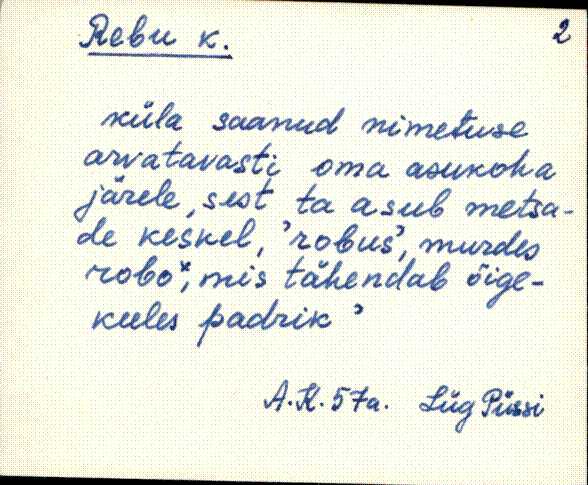 Rebu k.
2
küla saanud nimetuse
arvatavasti oma asukoha
järele, sest ta asub metsa-
de keskel, 'robus', murdes
robo", mis tähendab õige-
keeles padrik'
A.K. 57a. Lüg Püssi